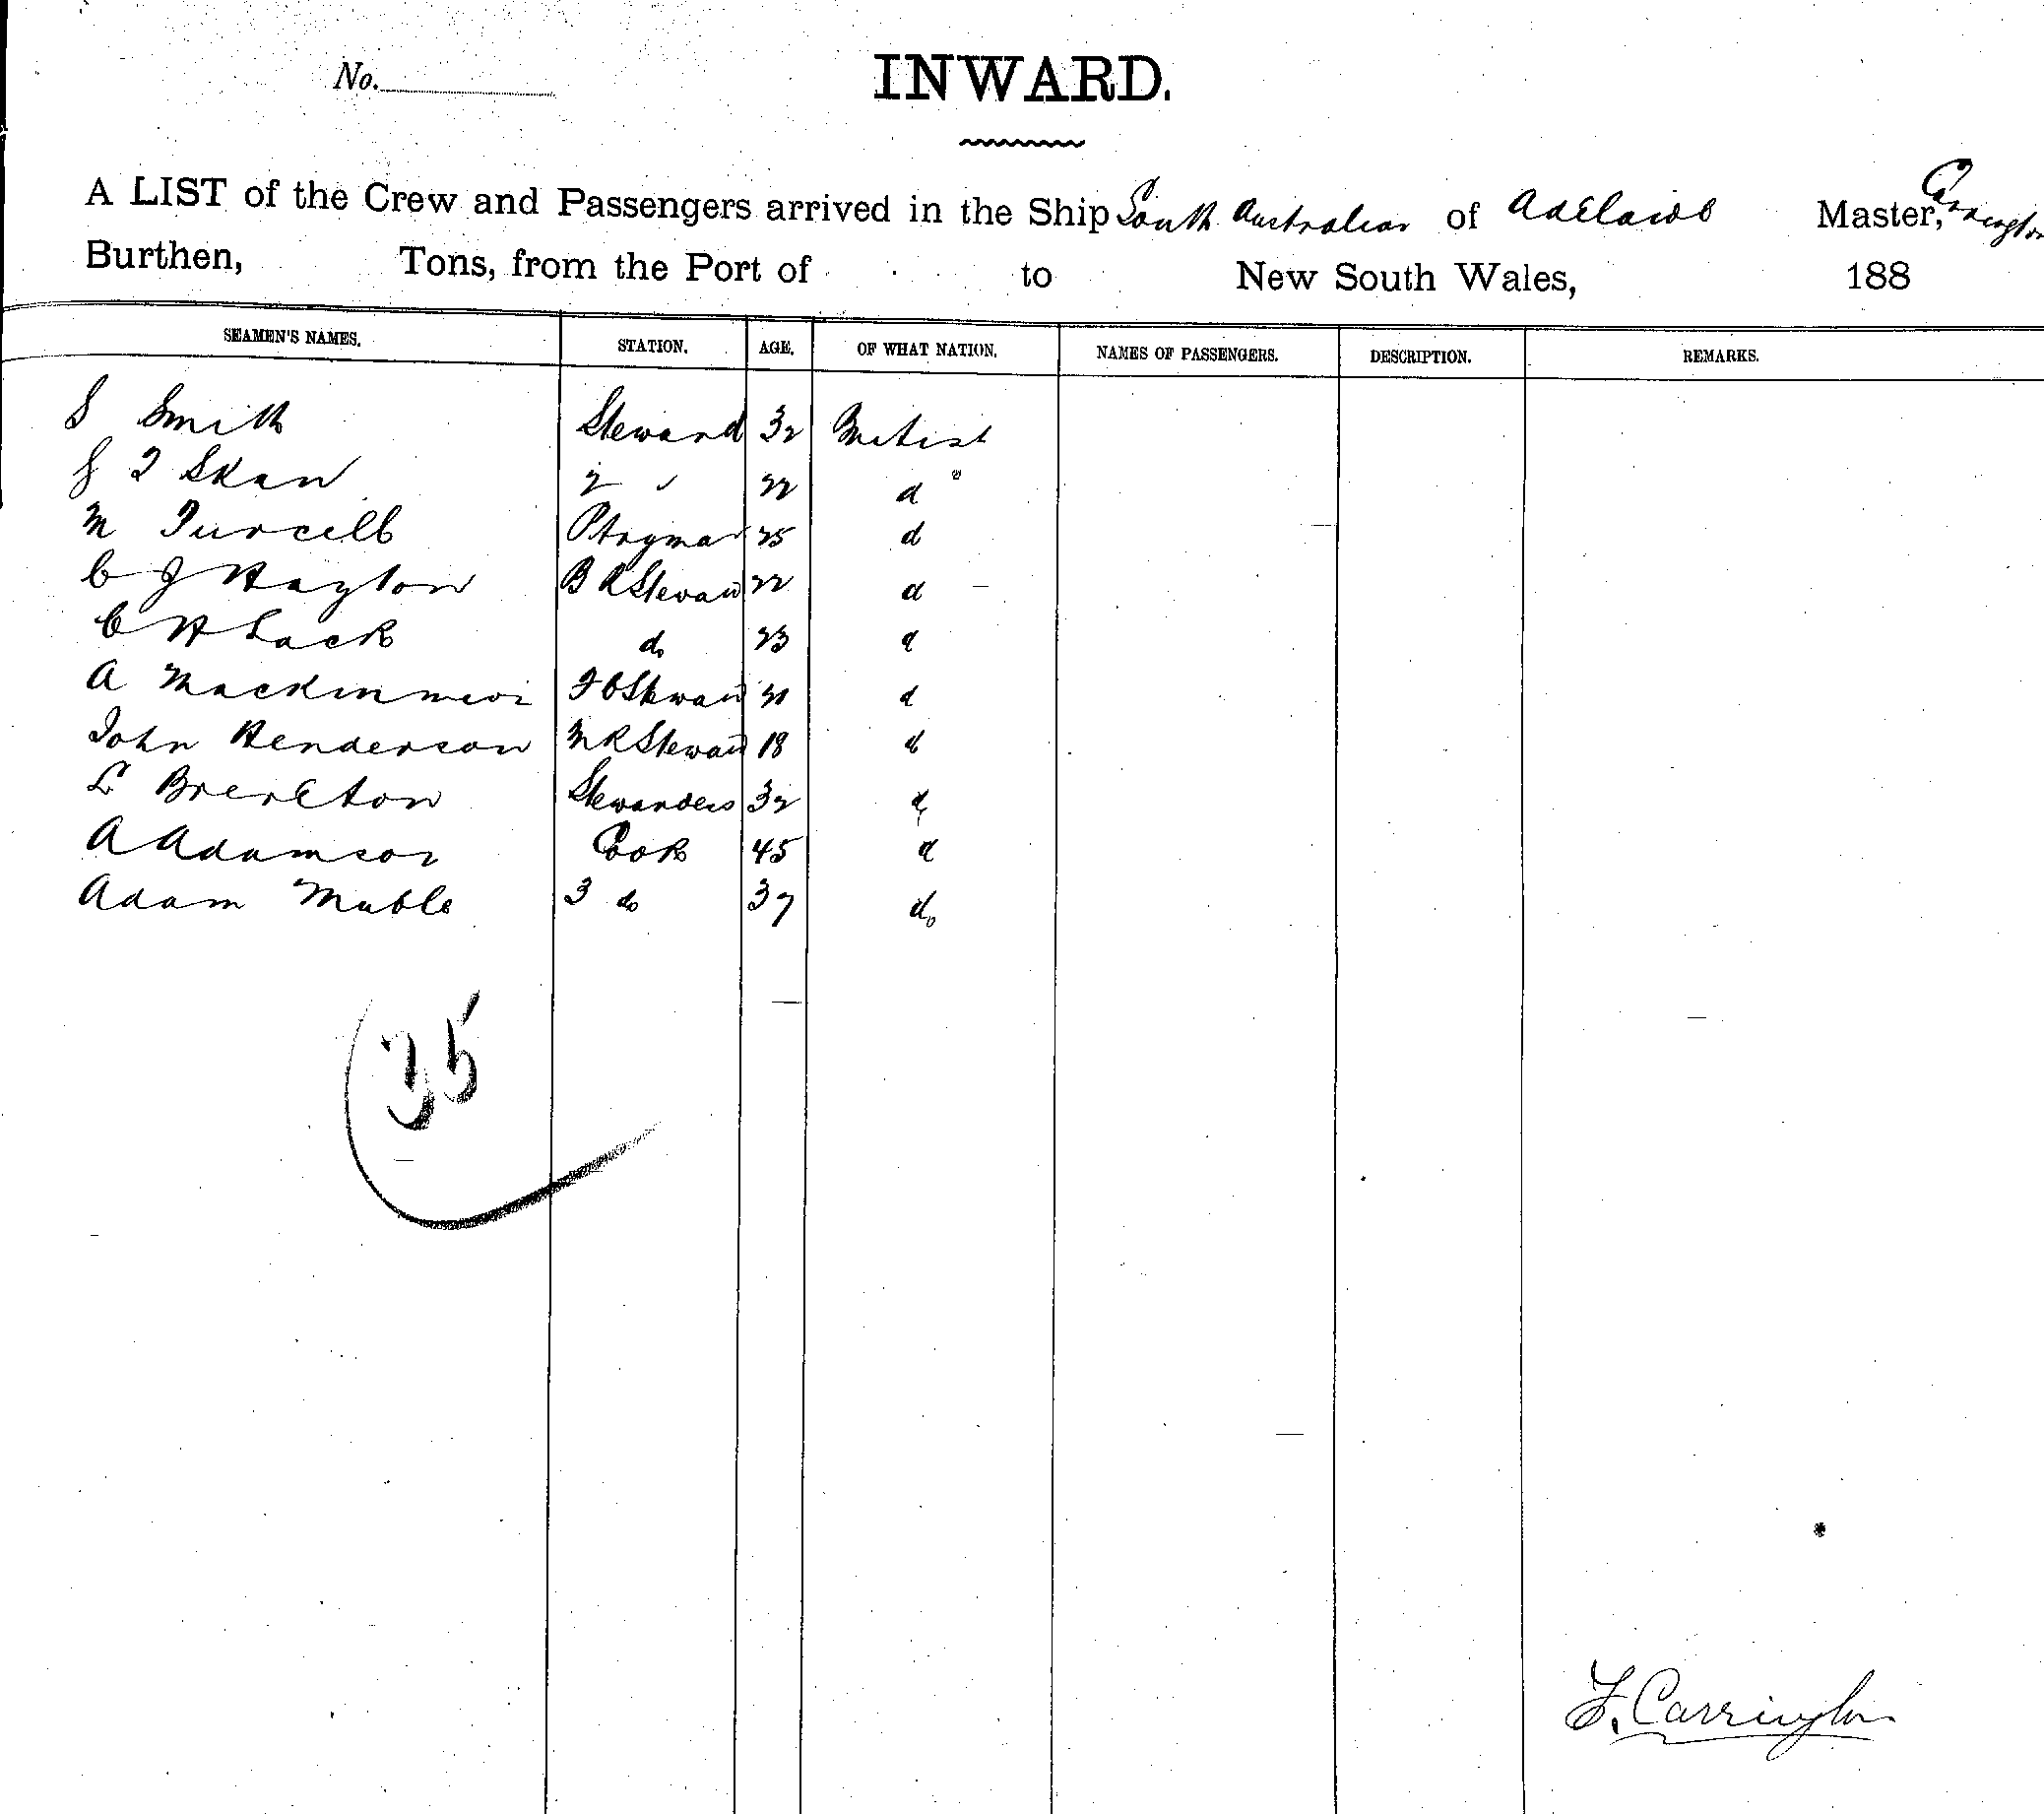 No.
INWARD.
A LIST of the Crew and Passengers arrived in the Ship South Australian of Adelaide Master, Carrington
Burthen, Tons, from the Port of to New South Wales, 188
SEAMEN'S NAMES. STATION. AGE. OF WHAT NATION. NAMES OF PASSENGERS. DESCRIPTION. REMARKS.
S Smith Steward 32 British
J T Skan 2 " 22 d
M Purcell Ptryman 25 d
C J Hayton B R Steward 22 d
C H Lack do 23 d
A Mackinnon F C Steward d
John Henderson M R Steward 18 d
L Brereton Stewardess 32 d
A Adamson Cook 45 d
Adam Muble 3 do 37 do
35
F. Carrington